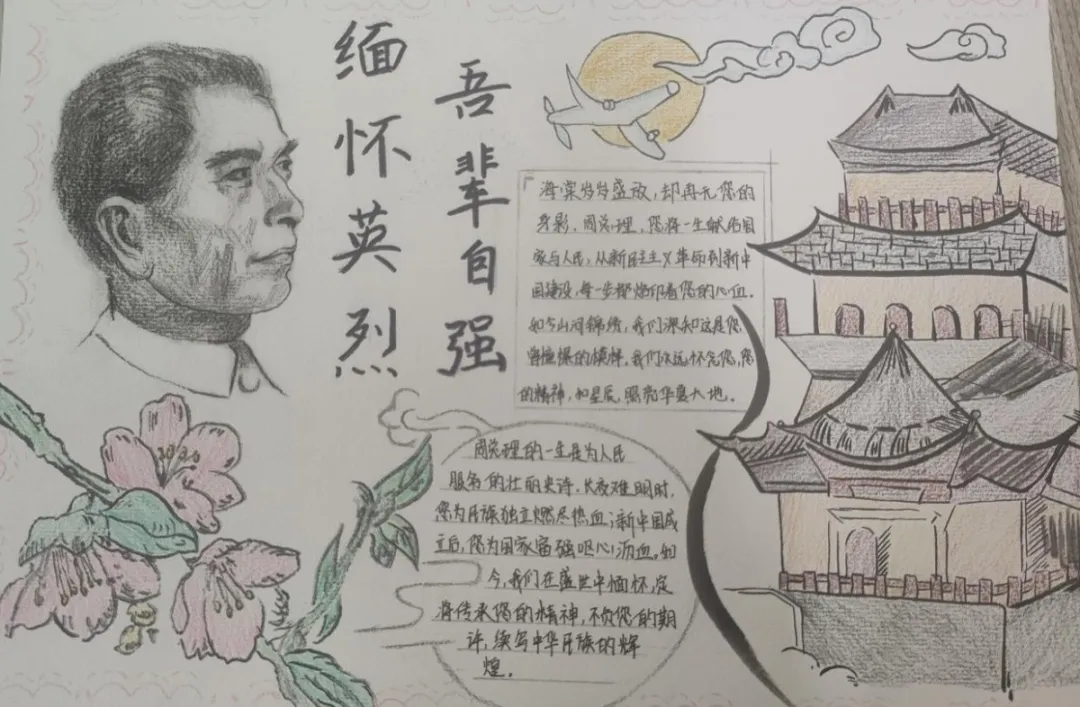 缅怀英烈
吾辈自强
海棠岁岁盛放，却再无您的
身影，周总理，您将一生献给国
家与人民，从新民主主义革命到新中
国建设，每一步都烙印着您的心血。
如今山河锦绣，我们深知这是您
曾憧憬的模样。我们永远怀念您，您
的精神，如星辰，照亮华夏大地。
周总理的一生是为人民
服务的壮丽史诗。长夜难明时，
您为民族独立燃尽热血；新中国成
立后，您为国家富强呕心沥血。如
今，我们在盛世中缅怀，定
将传承您的精神，不负您的期
许，续写中华民族的辉
煌。